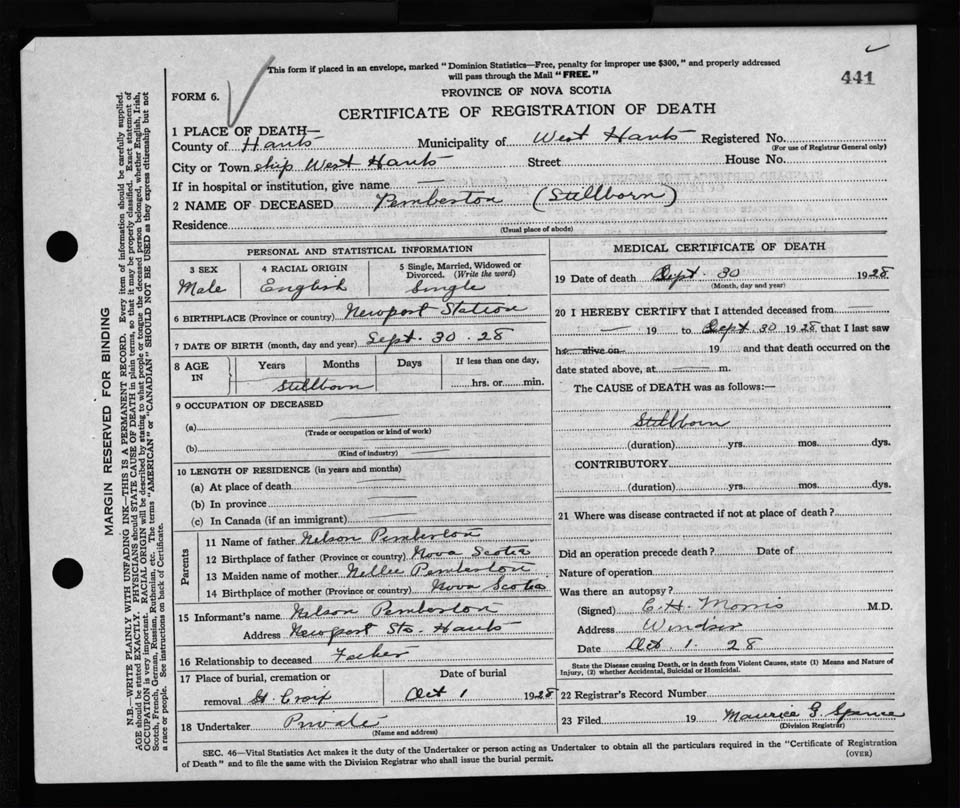 This form if placed in an envelope, marked "Dominion Statistics—Free, penalty for improper use $300," and properly addressed
will pass through the Mail "FREE."
441
FORM 6.
PROVINCE OF NOVA SCOTIA
CERTIFICATE OF REGISTRATION OF DEATH
1 PLACE OF DEATH—
County of Hants Municipality of West Hants Registered No.
(For use of Registrar General only)
City or Township West Hants Street House No.
If in hospital or institution, give name —
2 NAME OF DECEASED Pemberton (Stillborn)
Residence
(Usual place of abode)
PERSONAL AND STATISTICAL INFORMATION
3 SEX 4 RACIAL ORIGIN 5 Single, Married, Widowed or
Divorced. (Write the word)
Male English Single
6 BIRTHPLACE (Province or country) Newport Station
7 DATE OF BIRTH (month, day and year) Sept. 30. 28
8 AGE IN Years Months Days If less than one day,
Stillborn hrs. or min.
9 OCCUPATION OF DECEASED
(a)
(Trade or occupation or kind of work)
(b)
(Kind of industry)
10 LENGTH OF RESIDENCE (in years and months)
(a) At place of death
(b) In province
(c) In Canada (if an immigrant)
Parents
11 Name of father Nelson Pemberton
12 Birthplace of father (Province or country) Nova Scotia
13 Maiden name of mother Nellie Pemberton
14 Birthplace of mother (Province or country) Nova Scotia
15 Informant's name Nelson Pemberton
Address Newport Sta. Hants
16 Relationship to deceased Father
17 Place of burial, cremation or Date of burial
removal St. Croix Oct 1 1928
18 Undertaker Private
(Name and address)
MEDICAL CERTIFICATE OF DEATH
19 Date of death Sept. 30 1928
(Month, day and year)
20 I HEREBY CERTIFY that I attended deceased from
— 19 to Sept 30 1928 that I last saw
h alive on 19 and that death occurred on the
date stated above, at — m.
The CAUSE of DEATH was as follows:—
Stillborn
(duration) yrs. mos. dys.
CONTRIBUTORY
(duration) yrs. mos. dys.
21 Where was disease contracted if not at place of death?
Did an operation precede death? Date of
Nature of operation
Was there an autopsy?
(Signed) C. H. Morris M.D.
Address Windsor
Date Oct. 1. 28
State the Disease causing Death, or in death from Violent Causes, state (1) Means and Nature of
Injury, (2) whether Accidental, Suicidal or Homicidal.
22 Registrar's Record Number
23 Filed 19 Maurice G. Spence
(Division Registrar)
SEC. 46—Vital Statistics Act makes it the duty of the Undertaker or person acting as Undertaker to obtain all the particulars required in the "Certificate of Registration
of Death" and to file the same with the Division Registrar who shall issue the burial permit.
(OVER)
MARGIN RESERVED FOR BINDING
N.B.—WRITE PLAINLY WITH UNFADING INK—THIS IS A PERMANENT RECORD. Every item of information should be carefully supplied.
AGE should be stated EXACTLY. PHYSICIANS should STATE CAUSE OF DEATH in plain terms, so that it may be properly classified. Exact statement of
OCCUPATION is very important. RACIAL ORIGIN will be described by stating to what people or tongue the deceased person belonged, whether English, Irish,
Scotch, French, German, Russian, Ruthenian, etc. The terms "AMERICAN" or "CANADIAN" SHOULD NOT BE USED as they express citizenship but not
a race or people. See instructions on back of Certificate.